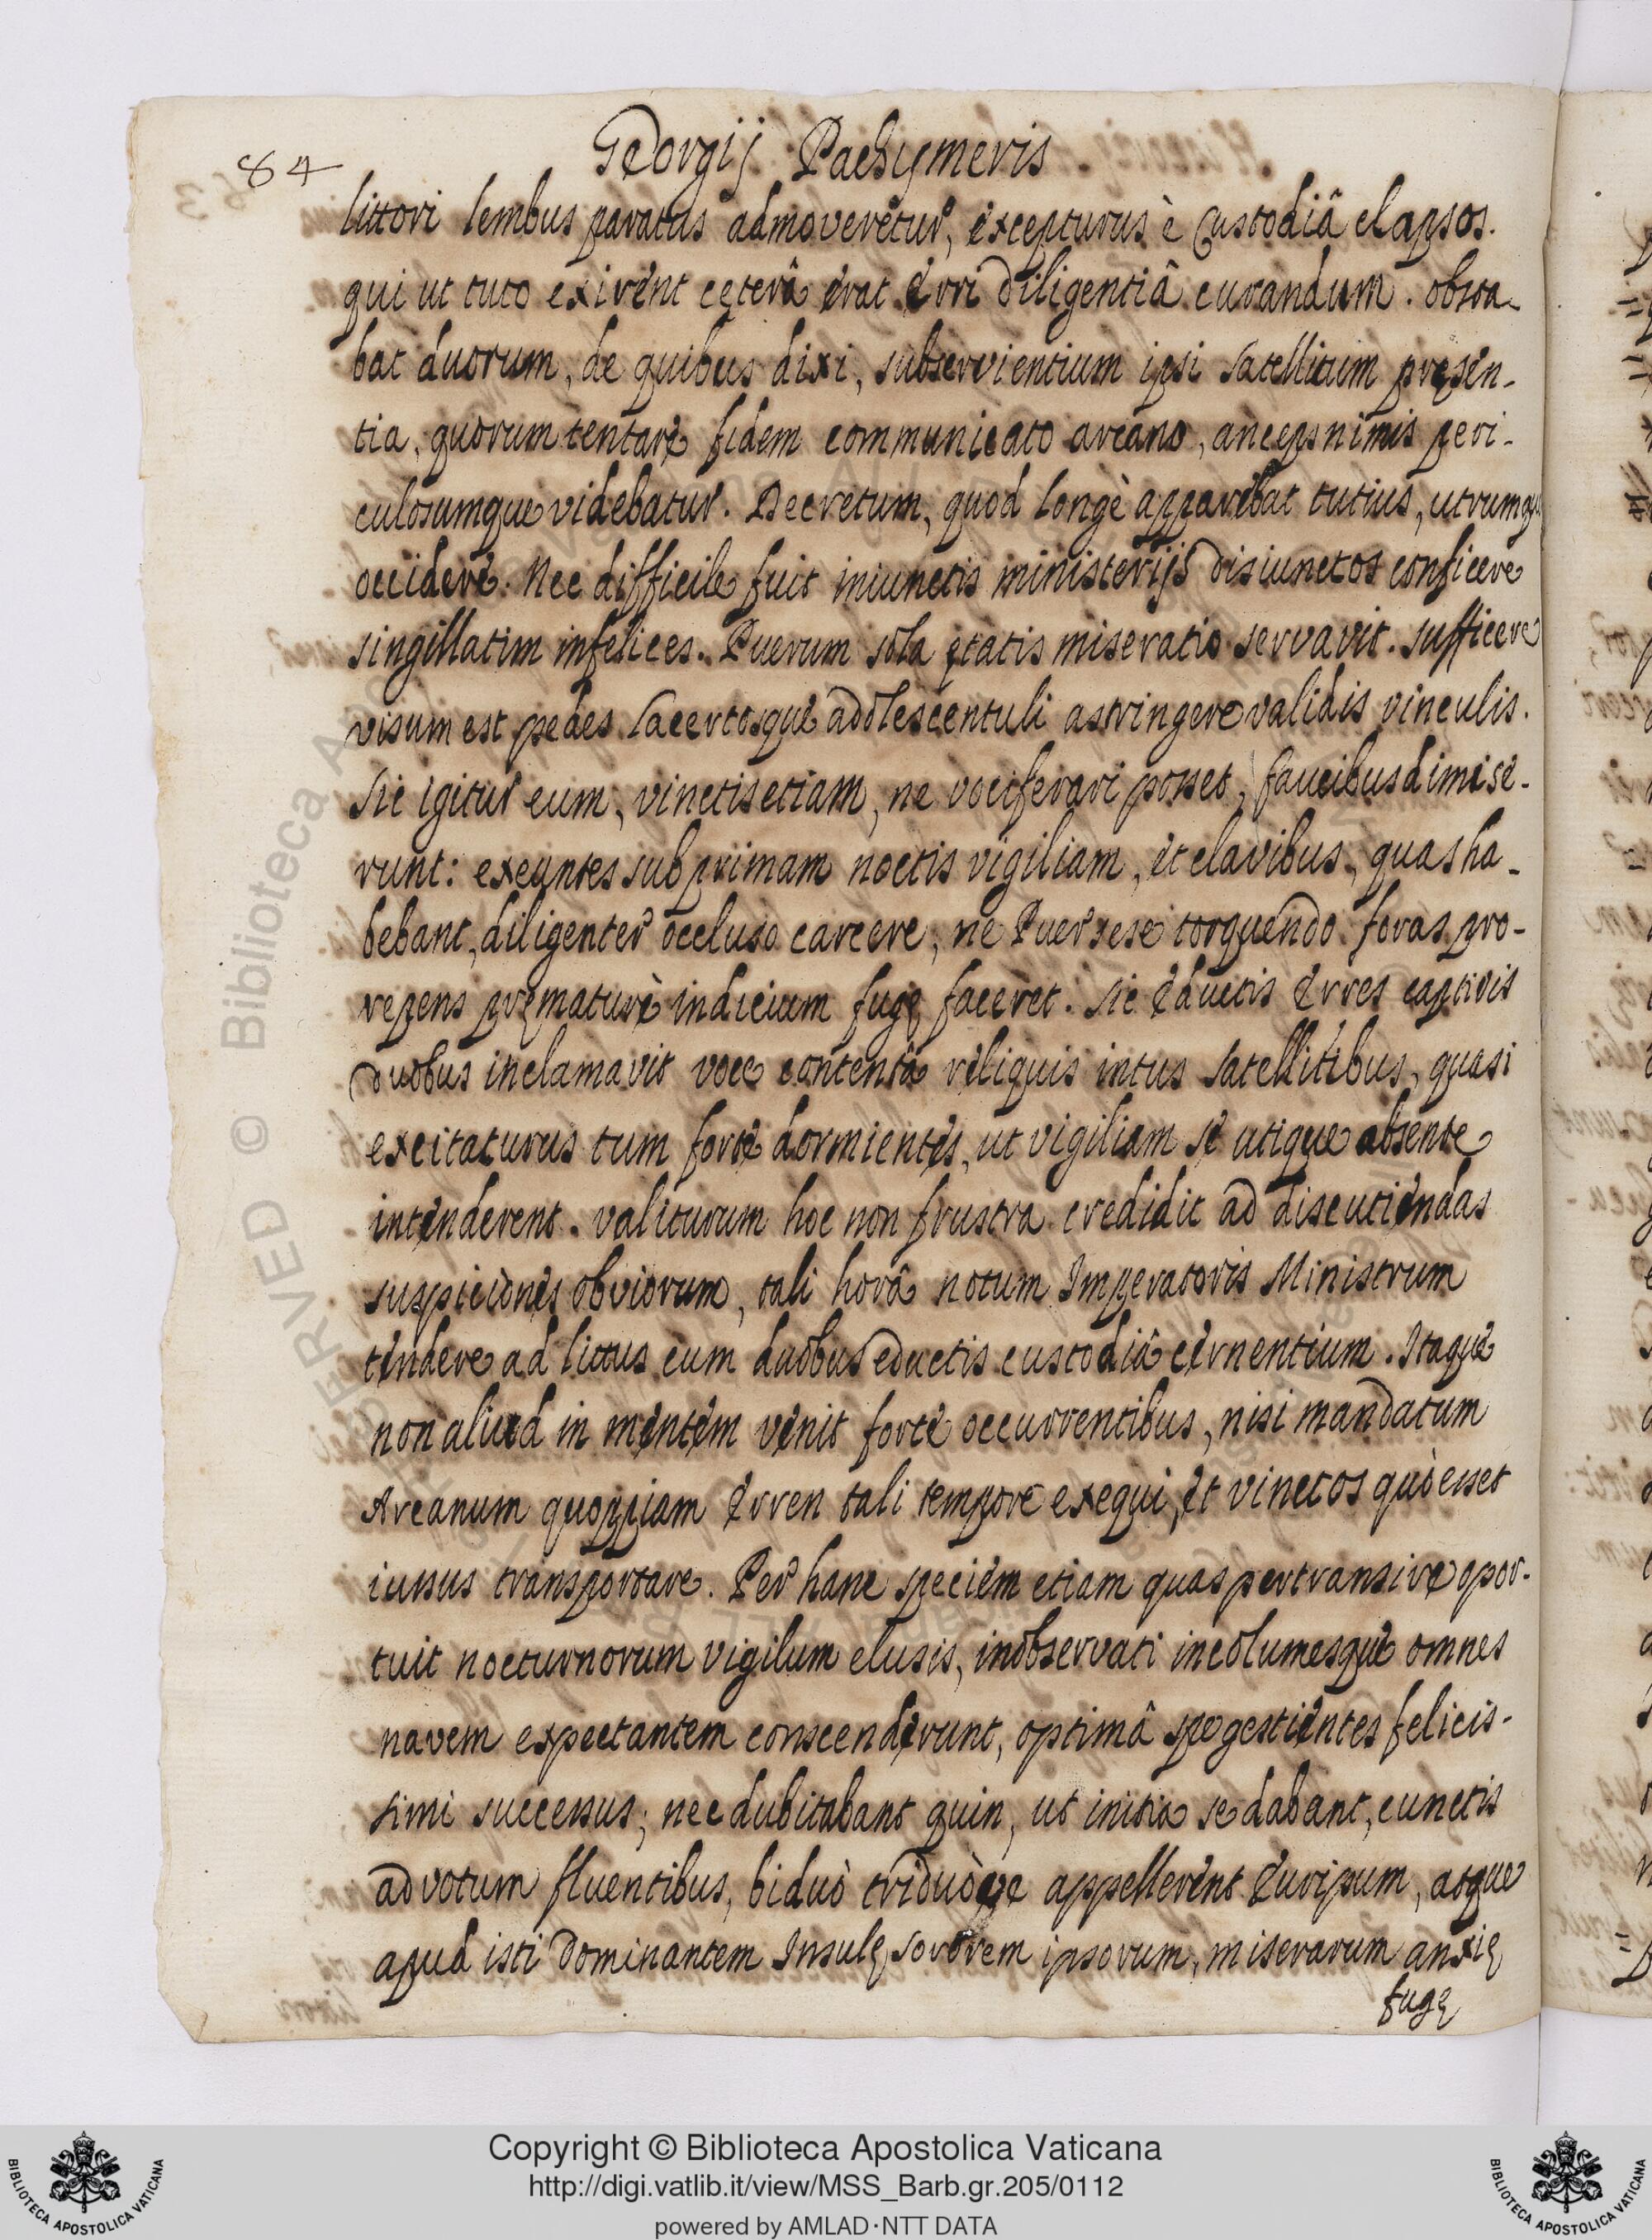 84
Georgij Pachymeris
littori lembus paratus admoveretur, excepturus è Custodiâ elapsos.
qui ut tuto exirent ceterâ erat Erri diligentiâ curandum. obsta-
bat duorum, de quibus dixi, subservientium ipsi satellitum pręsen-
tia, quorum tentare fidem communicato arcano, anceps nimis peri-
culosumque videbatur. Decretum, quod longè apparebat tutius, utrumq
occidere. Nec difficile fuit iniunctis ministerijs disiunctos conficere
singillatim infelices. Puerum sola ętatis miseratio servavit. sufficere
visum est pedes lacertosque adolescentuli astringere validis vinculis.
Sic igitur eum, vinctis etiam, ne vociferari posset, faucibus dimise-
runt: exeuntes sub primam noctis vigiliam, et clavibus, quas ha-
bebant, diligenter occluso carcere, ne Puer sese torquendo foras pro-
repens pręmaturè indicium fugę faceret. Sic eductis Erres captivis
duobus inclamavit voce contentâ reliquis intus satellitibus, quasi
excitaturus tum forte dormientes, ut vigiliam se utique absente
intenderent. valiturum hoc non frustra credidit ad discutiendas
suspiciones obviorum, tali horâ notum Imperatoris Ministrum
tendere ad littus cum duobus eductis custodiâ cernentium. Itaque
non aliud in mentem venit forte occurrentibus, nisi mandatum
Arcanum quoppiam Erren tali tempore exequi, et vinctos quò esset
iussus transportare. Per hanc speciem etiam quas pertransire opor-
tuit nocturnorum vigilum elusis, inobservati incolumesque omnes
navem expectantem conscenderunt, optimâ spe gestientes felicis-
simi successus; nec dubitabant quin, ut initia se dabant, cunctis
ad votum fluentibus, biduò triduòve appellerent Euripum, atque
apud isti Dominantem Insulę sororem ipsorum, miserarum anxię
fugę
Copyright © Biblioteca Apostolica Vaticana
http://digi.vatlib.it/view/MSS_Barb.gr.205/0112
powered by AMLAD·NTT DATA
BIBLIOTECA APOSTOLICA VATICANA
BIBLIOTECA APOSTOLICA VATICANA